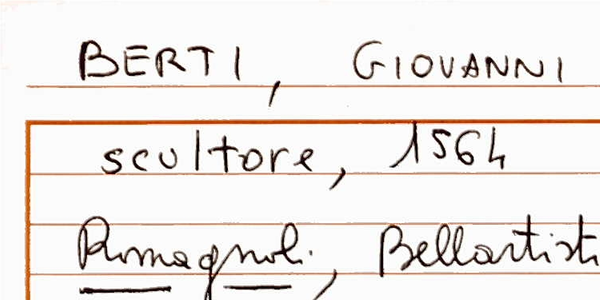 BERTI, GIOVANNI
scultore, 1564
Romagnoli, Bellartisti